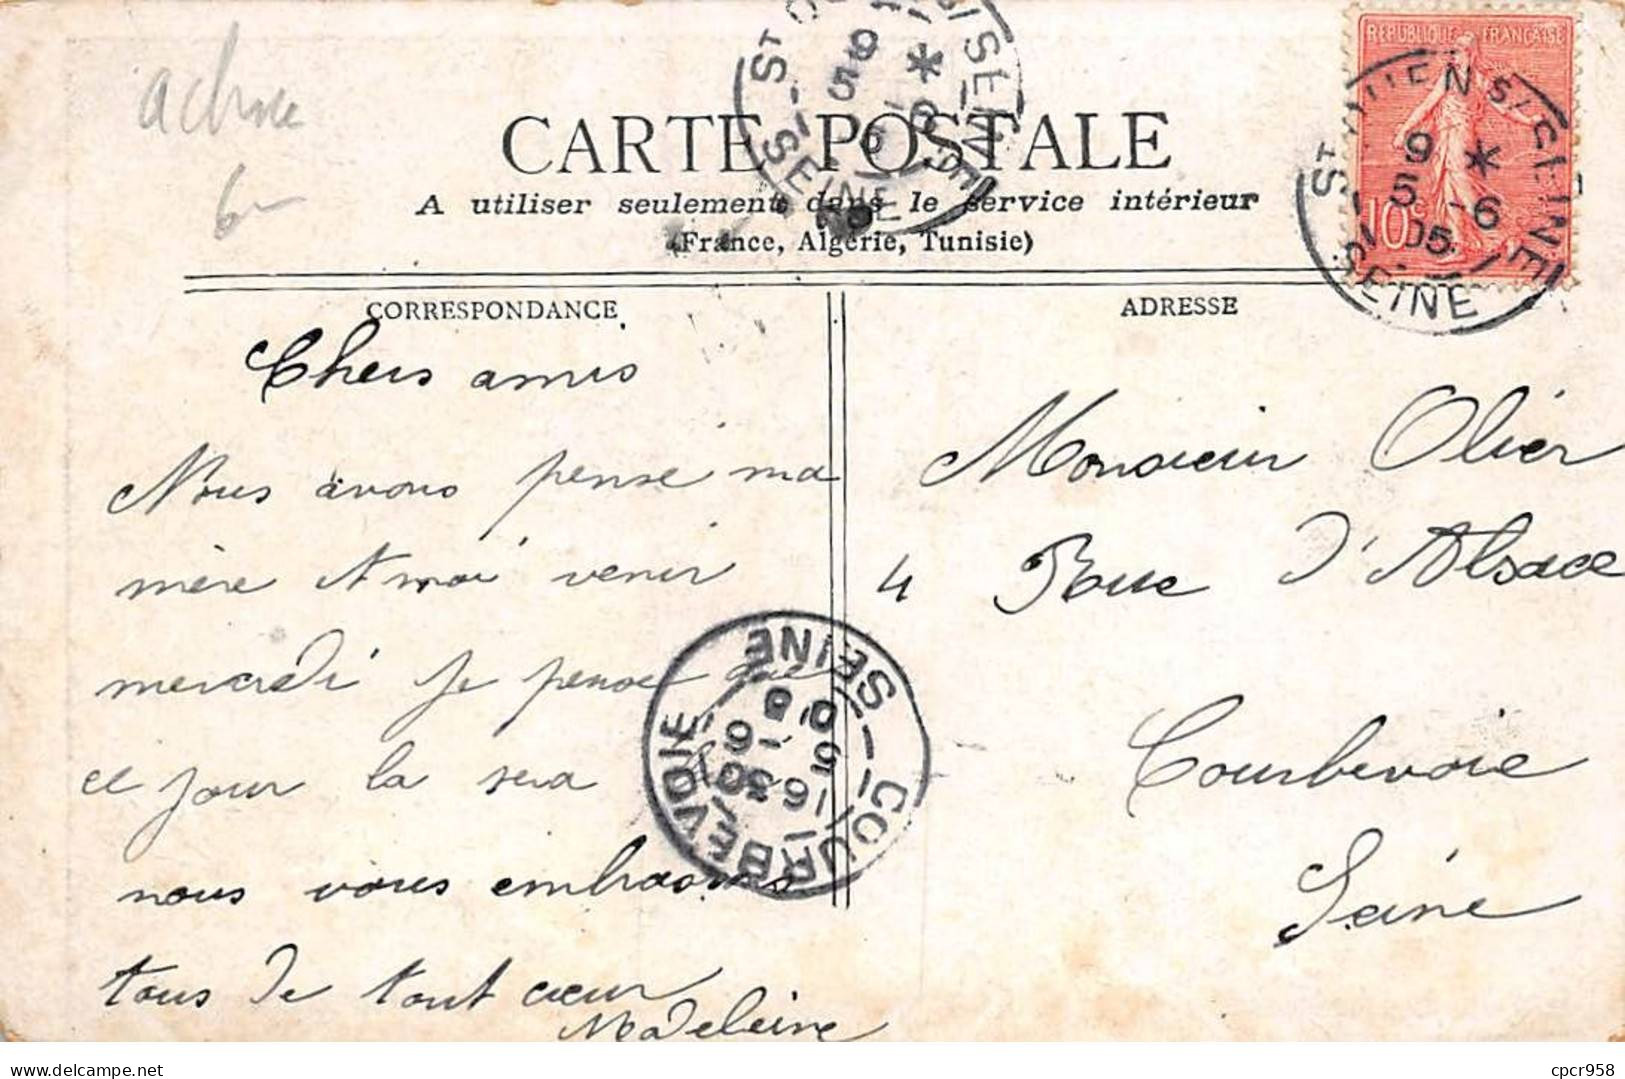 6
CARTE POSTALE
A utiliser seulement dans le service intérieur
(France, Algérie, Tunisie)
REPUBLIQUE FRANÇAISE
10c
ST OUEN S/SEINE
9 *
5 -6
05
SEINE
ST OUEN S/SEINE
9 *
5 -6
05
SEINE
CORRESPONDANCE
Chers amis
Nous avons pensé ma
mère et moi venir
mercredi je pense que
ce jour la sera
nous vous embrassons
tous de tout cœur
Madeleine
COURBEVOIE
16 30
5 -6
05
SEINE
ADRESSE
Monsieur Olier
4 Rue d'Alsace
Courbevoie
Seine
delcampe.net
cpcr958